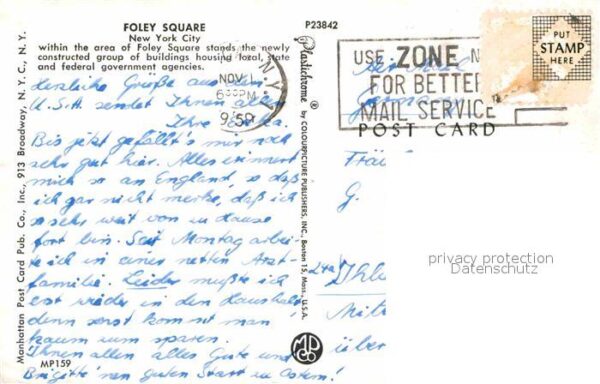 FOLEY SQUARE
New York City
within the area of Foley Square stands the newly
constructed group of buildings housing local, state
and federal government agencies.
P23842
Herzliche Grüße aus den
U.S.A. sendet Ihnen allen
Ihre
Bis jetzt gefällt's mir noch
sehr gut hier. Alles erinnert
mich so an England, so daß
ich gar nicht merke, daß ich
so sehr weit von zu Hause
fort bin. Seit Montag arbei-
te ich in einer netten Arzt-
familie. Leider mußte ich
erst wieder in den Haushalt
denn sonst kommt man
kaum zum sparen.
Ihnen allen alles Gute und
Brigitte 'nen guten Start zu Ostern!
MP159
Manhattan Post Card Pub. Co., Inc., 913 Broadway, N. Y. C., N. Y.
Plastichrome ® by COLOURPICTURE PUBLISHERS, INC., Boston 15, Mass., U.S.A.
N.Y.
NOV 1
6 30 PM
USE ZONE N
FOR BETTER
MAIL SERVICE
PUT
STAMP
HERE
POST CARD
Air Mail
Frä
G.
24a
Mit
über
MP
CO
privacy protection
Datenschutz